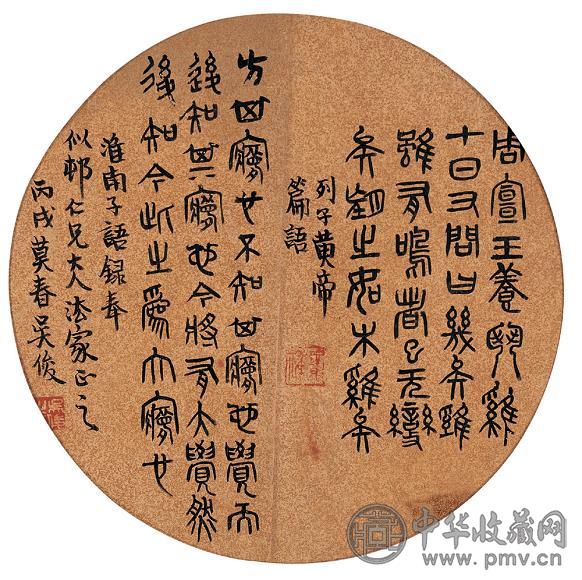 周宣王養鬥雞
十日又問曰幾矣雞
雖有鳴者已无變
矣望之如木雞矣
列子黃帝
篇語
方其夢也不知其夢也覺而
後知其夢也今將有大覺然
後知今此之為大夢也
淮南子語錄奉
似邨仁兄大人法家正之
丙戌莫春吳俊
中华收藏网
www.pmv.cn